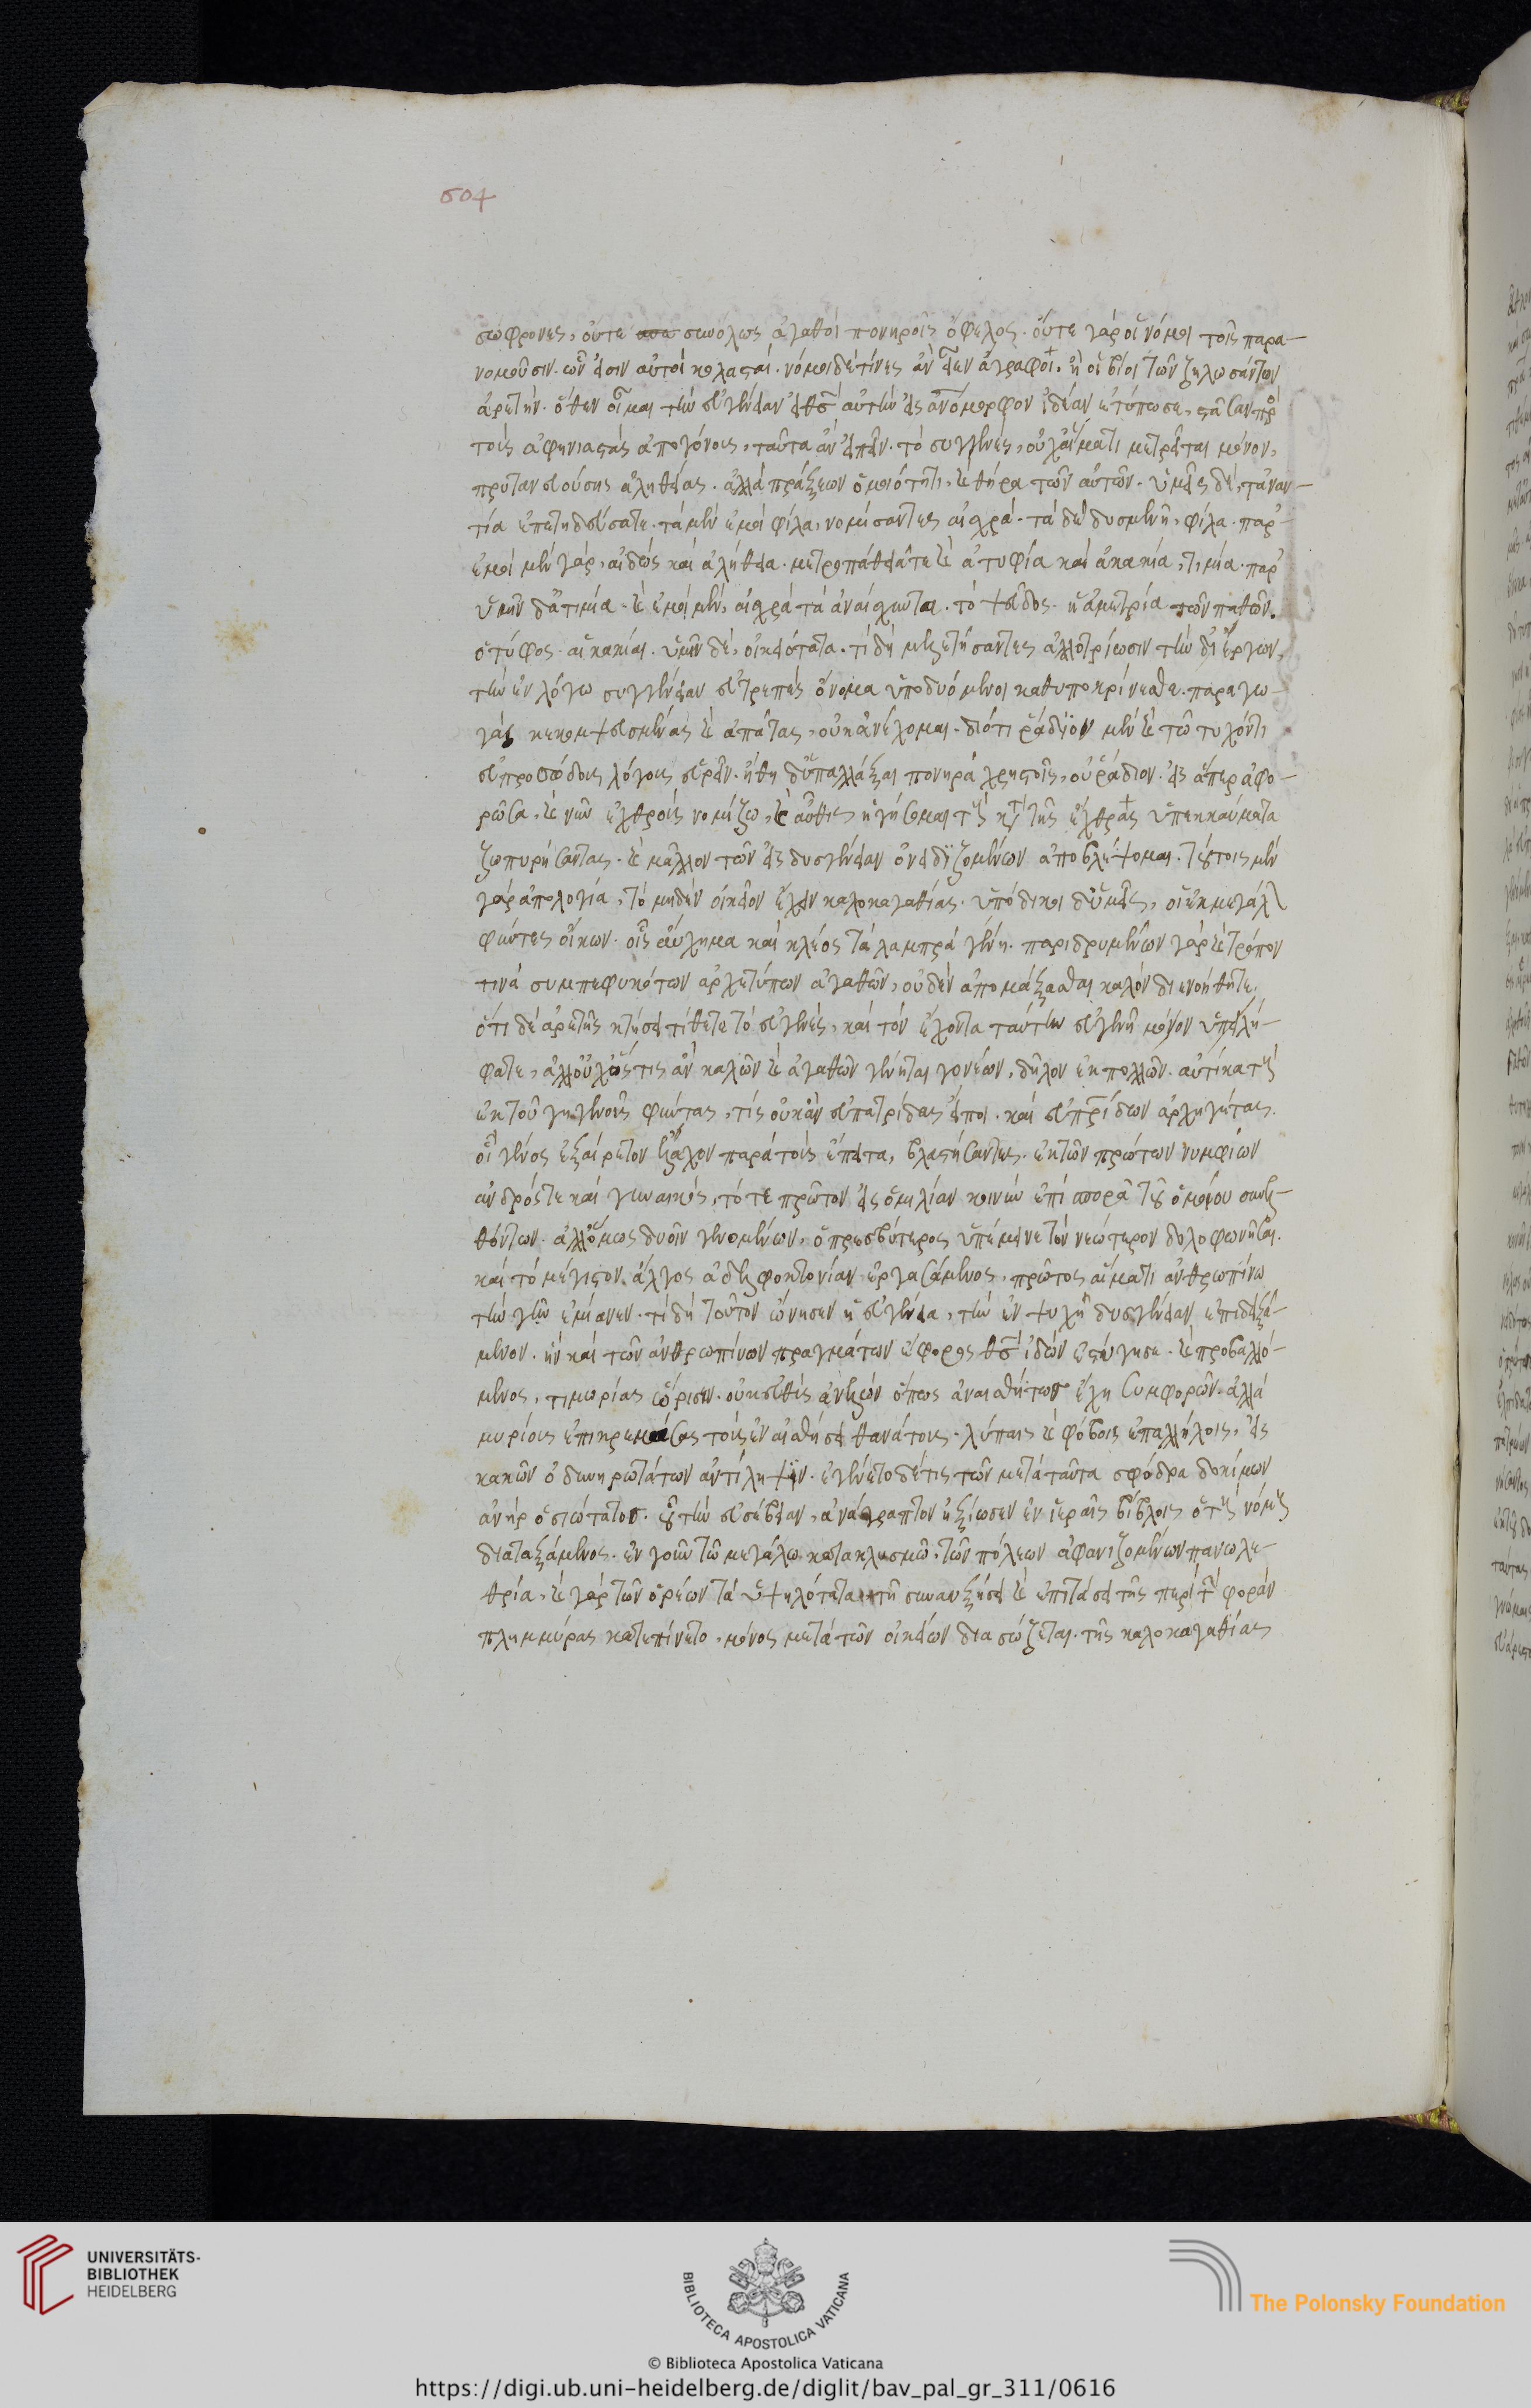 504
σώφρονες, οὔτε συνόλως ἀγαθοὶ πονηροῖς ὄφελος. οὔτε γὰρ οἱ νόμοι τοῖς παρα-
νομοῦσιν. ὧν εἰσιν αὐτοὶ κολασταί. νόμοι δέ τινες ἂν εἶεν ἄγραφοι. ἢ οἱ βίοι τῶν ζηλωσάντων
ἀρετήν. ὅθεν οἶμαι τὴν εὐγένειαν εἰ θσ αὐτὴν εἰς ἀνόμορφον ἰδέαν ἐτύπωσε, στᾶσαν πρὸ
τοὺς ἀφηνιαστὰς ἀπογόνους, ταῦτα ἂν εἰπεῖν. τὸ συγγενές, οὐχ αἵματι μετρεῖται μόνον,
πρυτανευούσης ἀληθείας. ἀλλὰ πράξεων ὁμοιότητι, καὶ θήρα τῶν αὐτῶν. ὑμεῖς δὲ, τἀναν-
τία ἐπετηδεύσατε. τὰ μὲν ἐμοὶ φίλα, νομίσαντες αἰσχρά. τὰ δὲ δυσμενῆ, φίλα. παρ'
ἐμοὶ μὲν γὰρ, αἰδὼς καὶ ἀλήθεια. μετριοπάθειά τε καὶ ἀτυφία καὶ ἀκακία, τιμία. παρ'
ὑμῖν δ' ἄτιμα. καὶ ἐμοὶ μὲν, αἰσχρὰ τὰ ἀναίσχυντα. τὸ ψεῦδος. ἡ ἀμετρία τῶν παθῶν.
ὁ τύφος. αἱ κακίαι. ὑμῖν δὲ, οἰκειότατα. τί δὴ μελετήσαντες ἀλλοτρίωσιν τὴν δι' ἔργων,
τὴν ἐν λόγω συγγένειαν εὐπρεπὲς ὄνομα ὑποδυόμενοι καθυποκρίνεσθε. παραγω-
γὰς κεκομψευμένας καὶ ἀπάτας, οὐκ ἀνέχομαι. διότι ῥάδιον μὲν καὶ τῶ τυχόντι
εὐπροσώπους λόγους εὑρεῖν. ἤθη δ' ὑπαλλάξαι πονηρὰ χρηστοῖς, οὐ ῥάδιον. εἰς ἅπερ ἀφο-
ρῶσα, καὶ νῦν ἐχθροὺς νομίζω, καὶ αὖθις ἡγήσομαι τοὺς τῆς ἔχθρας ὑπεκκαύματα
ζωπυρήσαντας. καὶ μᾶλλον τῶν εἰς δυσγένειαν ὀνειδιζομένων ἀποβλέψομαι. τούτοις μὲν
γὰρ ἀπολογία, τὸ μηδὲν οἰκεῖον ἔχειν καλοκαγαθίας. ὑπόδικοι δ' ὑμεῖς, οἱ ἐκ μεγάλ
φύντες οἴκων. οἷς αὔχημα καὶ κλέος τὰ λαμπρὰ γένη. παριδρυμένων γὰρ καὶ τρόπον
τινὰ συμπεφυκότων ἀρχετύπων ἀγαθῶν, οὐδὲν ἀπομάξασθαι καλὸν διενοήθητε,
ὅτι δὲ ἀρετῆς κτήσει τίθεται τὸ εὐγενὲς, καὶ τὸν ἔχοντα ταύτην εὐγενῆ μόνον ὑπείλη-
φατε, ἀλλ' οὐχ ὅστις ἂν καλῶν καὶ ἀγαθῶν γένηται γονέων, δῆλον ἐκ πολλῶν. αὐτίκα τοὺς
ἐκ τοῦ γηγενοῦς φύντας, τίς οὐκ ἂν εὐπατρίδας εἴποι. καὶ εὐπρίδων ἀρχηγέτας.
οἳ γένος ἐξαίρετον ἔλαχον παρὰ τοὺς ἔπειτα, βλαστήσαντες. ἐκ τῶν πρώτων νυμφίων
ἀνδρός τε καὶ γυναικὸς, τότε πρῶτον εἰς ὁμιλίαν κοινὴν ἐπὶ σπορᾶ τοῦ ὁμοίου συνελ-
θόντων. ἀλλ' ὅμως δυοῖν γενομένων, ὁ πρεσβύτερος ὑπέμεινε τὸν νεώτερον δολοφωνῆσαι.
καὶ τὸ μέγιστον ἄχγος ἀδελφοκτονίαν ἐργασάμενος, πρῶτος αἵματι ἀνθρωπίνω
τὴν γῆν ἐμίανεν. τί δὴ τοῦτον ὤνησεν ἡ εὐγένεια, τὴν ἐν ψυχῆ δυσγένειαν ἐπιδειξά-
μενον. ἣν καὶ τῶν ἀνθρωπίνων πραγμάτων ἔφορος θσ ἰδὼν ἐστύγησε. καὶ προβαλλό-
μενος, τιμωρίας ὥρισεν. οὐκ εὐθὺς ἀνελὼν ὅπως ἀναισθήτως ἔχη συμφορῶν. ἀλλὰ
μυρίους ἐπικρεμάσας τοὺς ἐν αἰσθήσει θανάτους. λύπαις καὶ φόβοις ἐπαλλήλοις, εἰς
κακῶν ὀδυνηρωτάτων ἀντίληψιν. ἐγένετο δέ τις τῶν μετὰ ταῦτα σφόδρα δοκίμων
ἀνὴρ ὁσιώτατος. οὗ τὴν εὐσέβειαν, ἀνάγραπτον ἠξίωσεν ἐν ἱεραῖς βίβλοις ὁ τοὺς νόμους
διαταξάμενος. ἐν γοῦν τῶ μεγάλω κατακλυσμῶ, τῶν πόλεων ἀφανιζομένων πανωλε-
θρία, καὶ γὰρ τῶν ὀρέων τὰ ὑψηλότατα τῆ συναυξήσει καὶ ἐπιτάσει τῆς περὶ τὴν φορὰν
πλημμύρας κατεπίνετο, μόνος μετὰ τῶν οἰκείων διασώζεται. τῆς καλοκαγαθίας
UNIVERSITÄTS-
BIBLIOTHEK
HEIDELBERG
BIBLIOTECA APOSTOLICA VATICANA
The Polonsky Foundation
© Biblioteca Apostolica Vaticana
https://digi.ub.uni-heidelberg.de/diglit/bav_pal_gr_311/0616